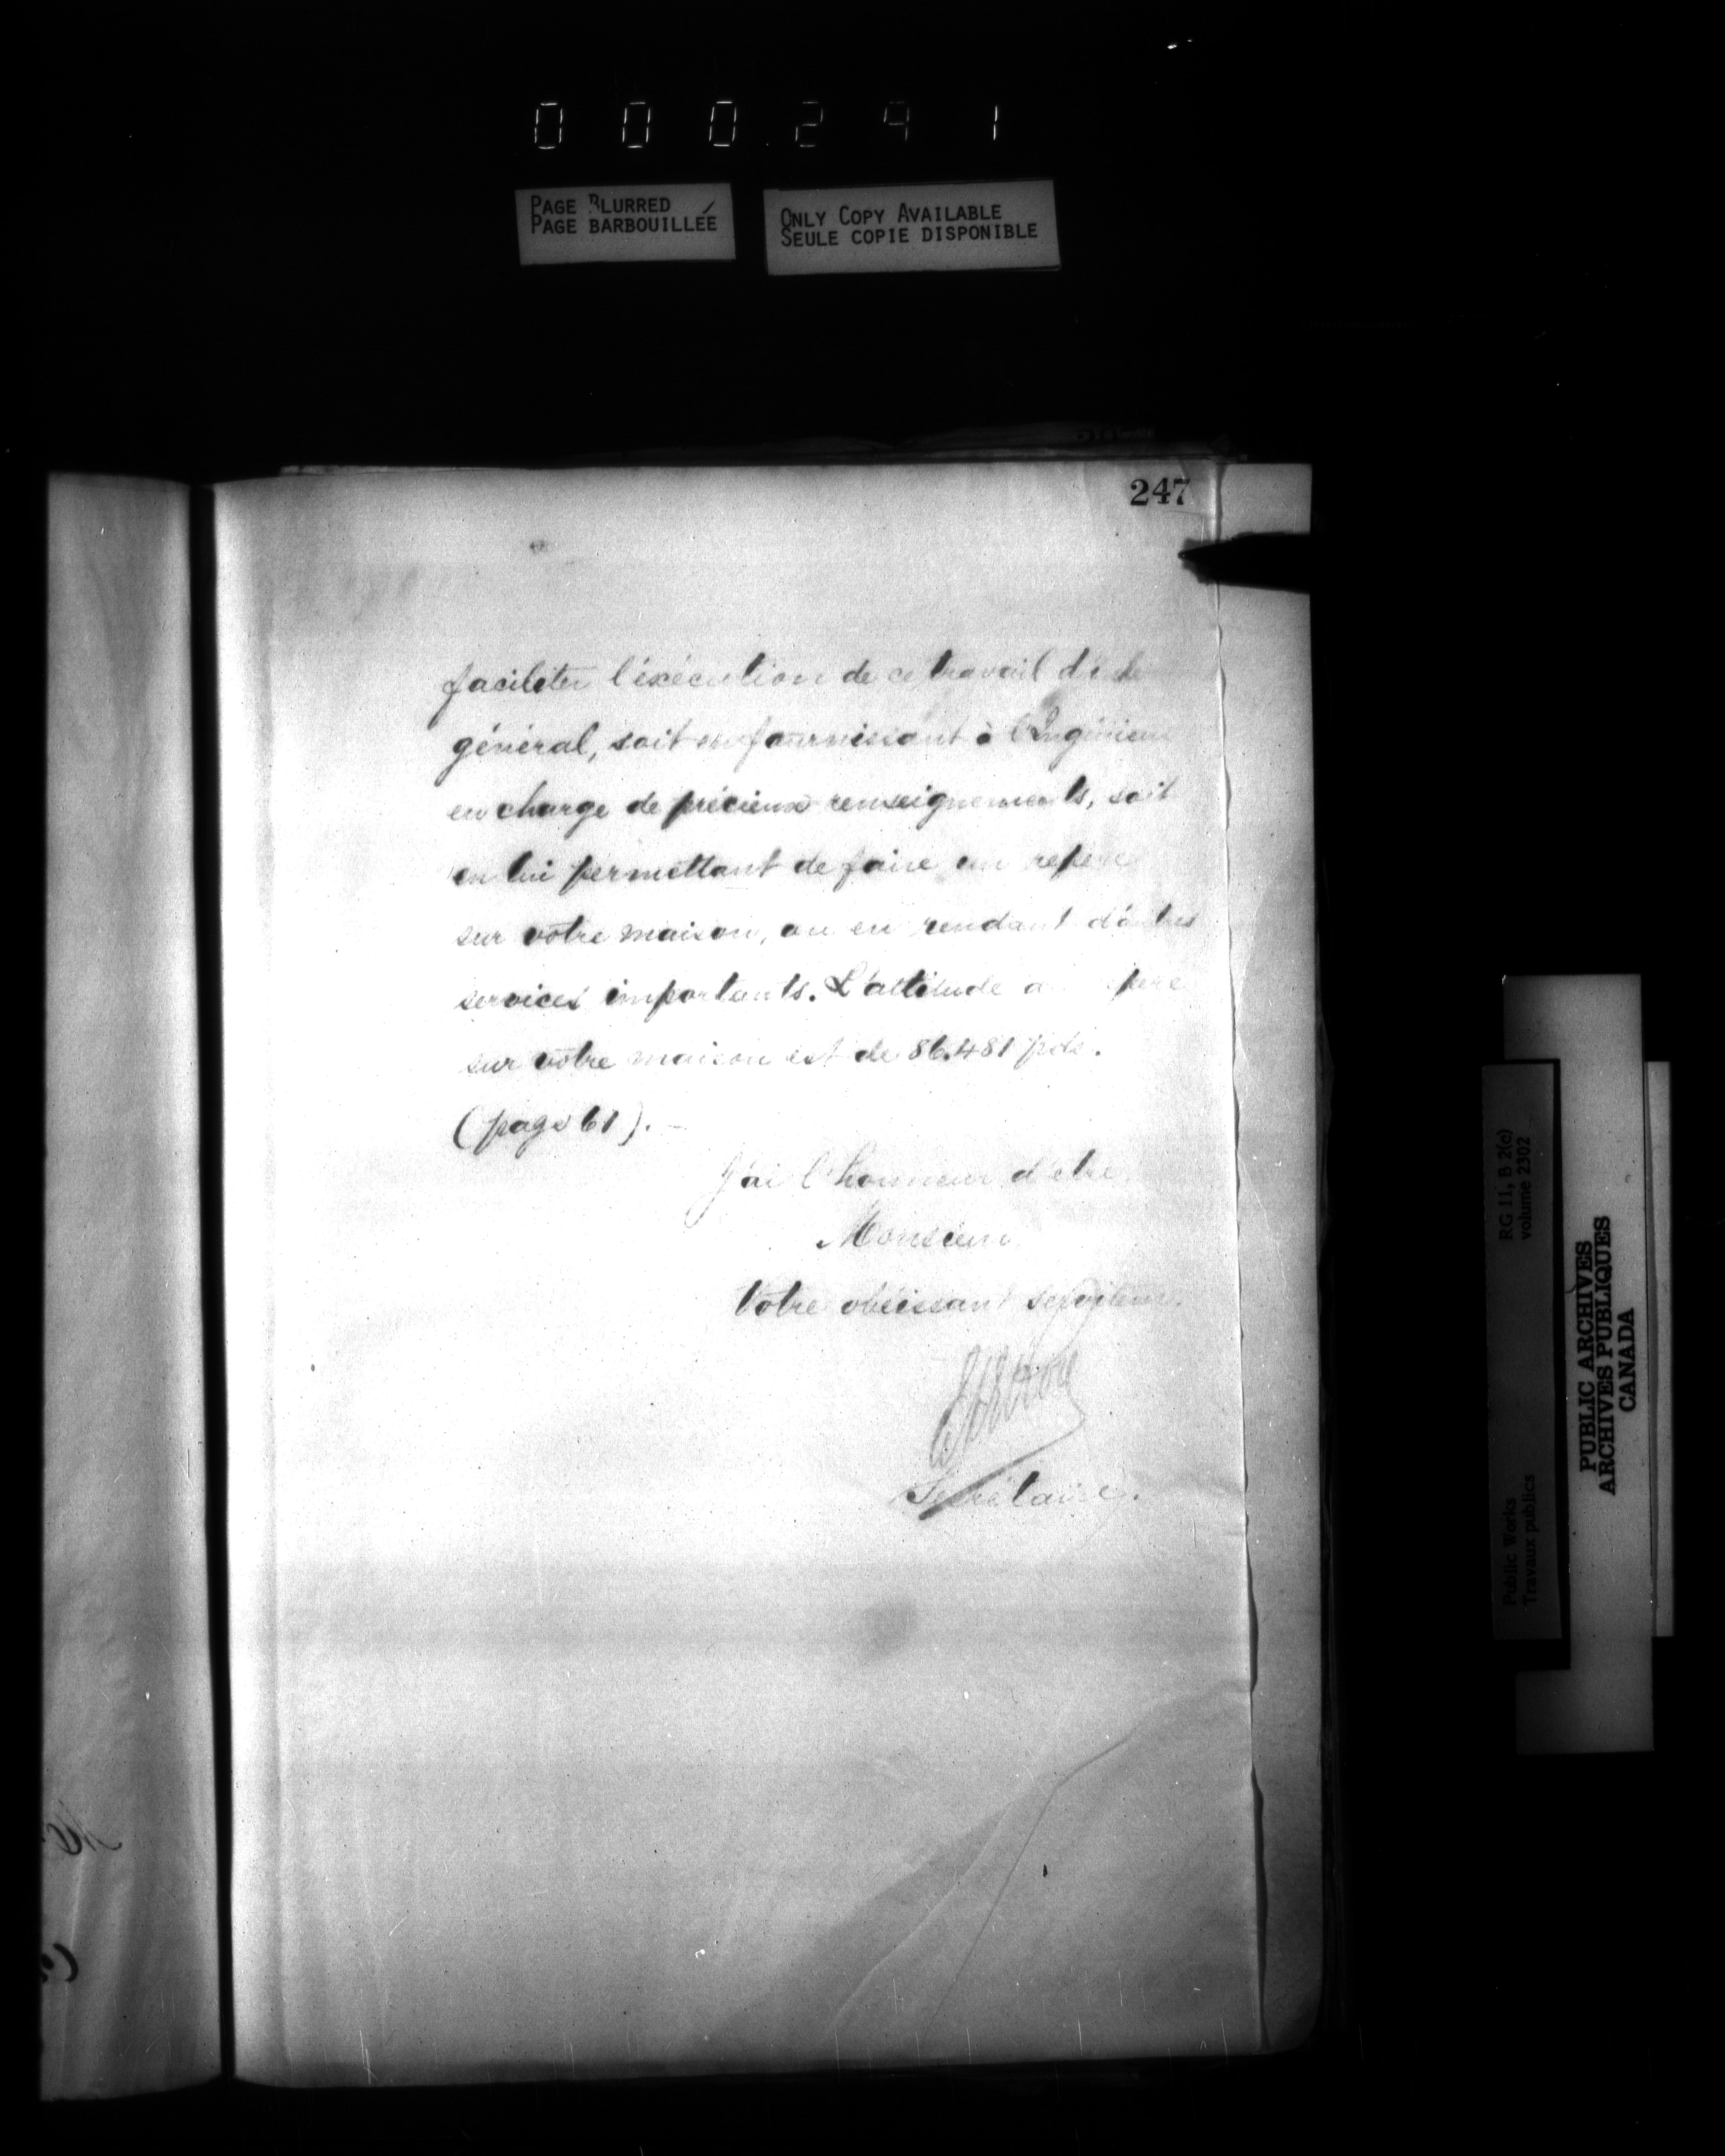 000291
PAGE BLURRED
PAGE BARBOUILLÉE
ONLY COPY AVAILABLE
SEULE COPIE DISPONIBLE
247
faciliter l'éxécution de ce travail
général, soit en fournissant à l'Ingénieur
en charge de précieux renseignements, soit
en lui permettant de faire un repère
sur votre maison, ou en rendant d'autres
services importants. L'altitude
sur votre maison est de 86.481 pds.
(page 61).
J'ai l'honneur d'être
Monsieur
Votre obéissant serviteur.
Secrétaire.
RG 11, B 2(c)
volume 2302
Public Works
Travaux publics
PUBLIC ARCHIVES
ARCHIVES PUBLIQUES
CANADA